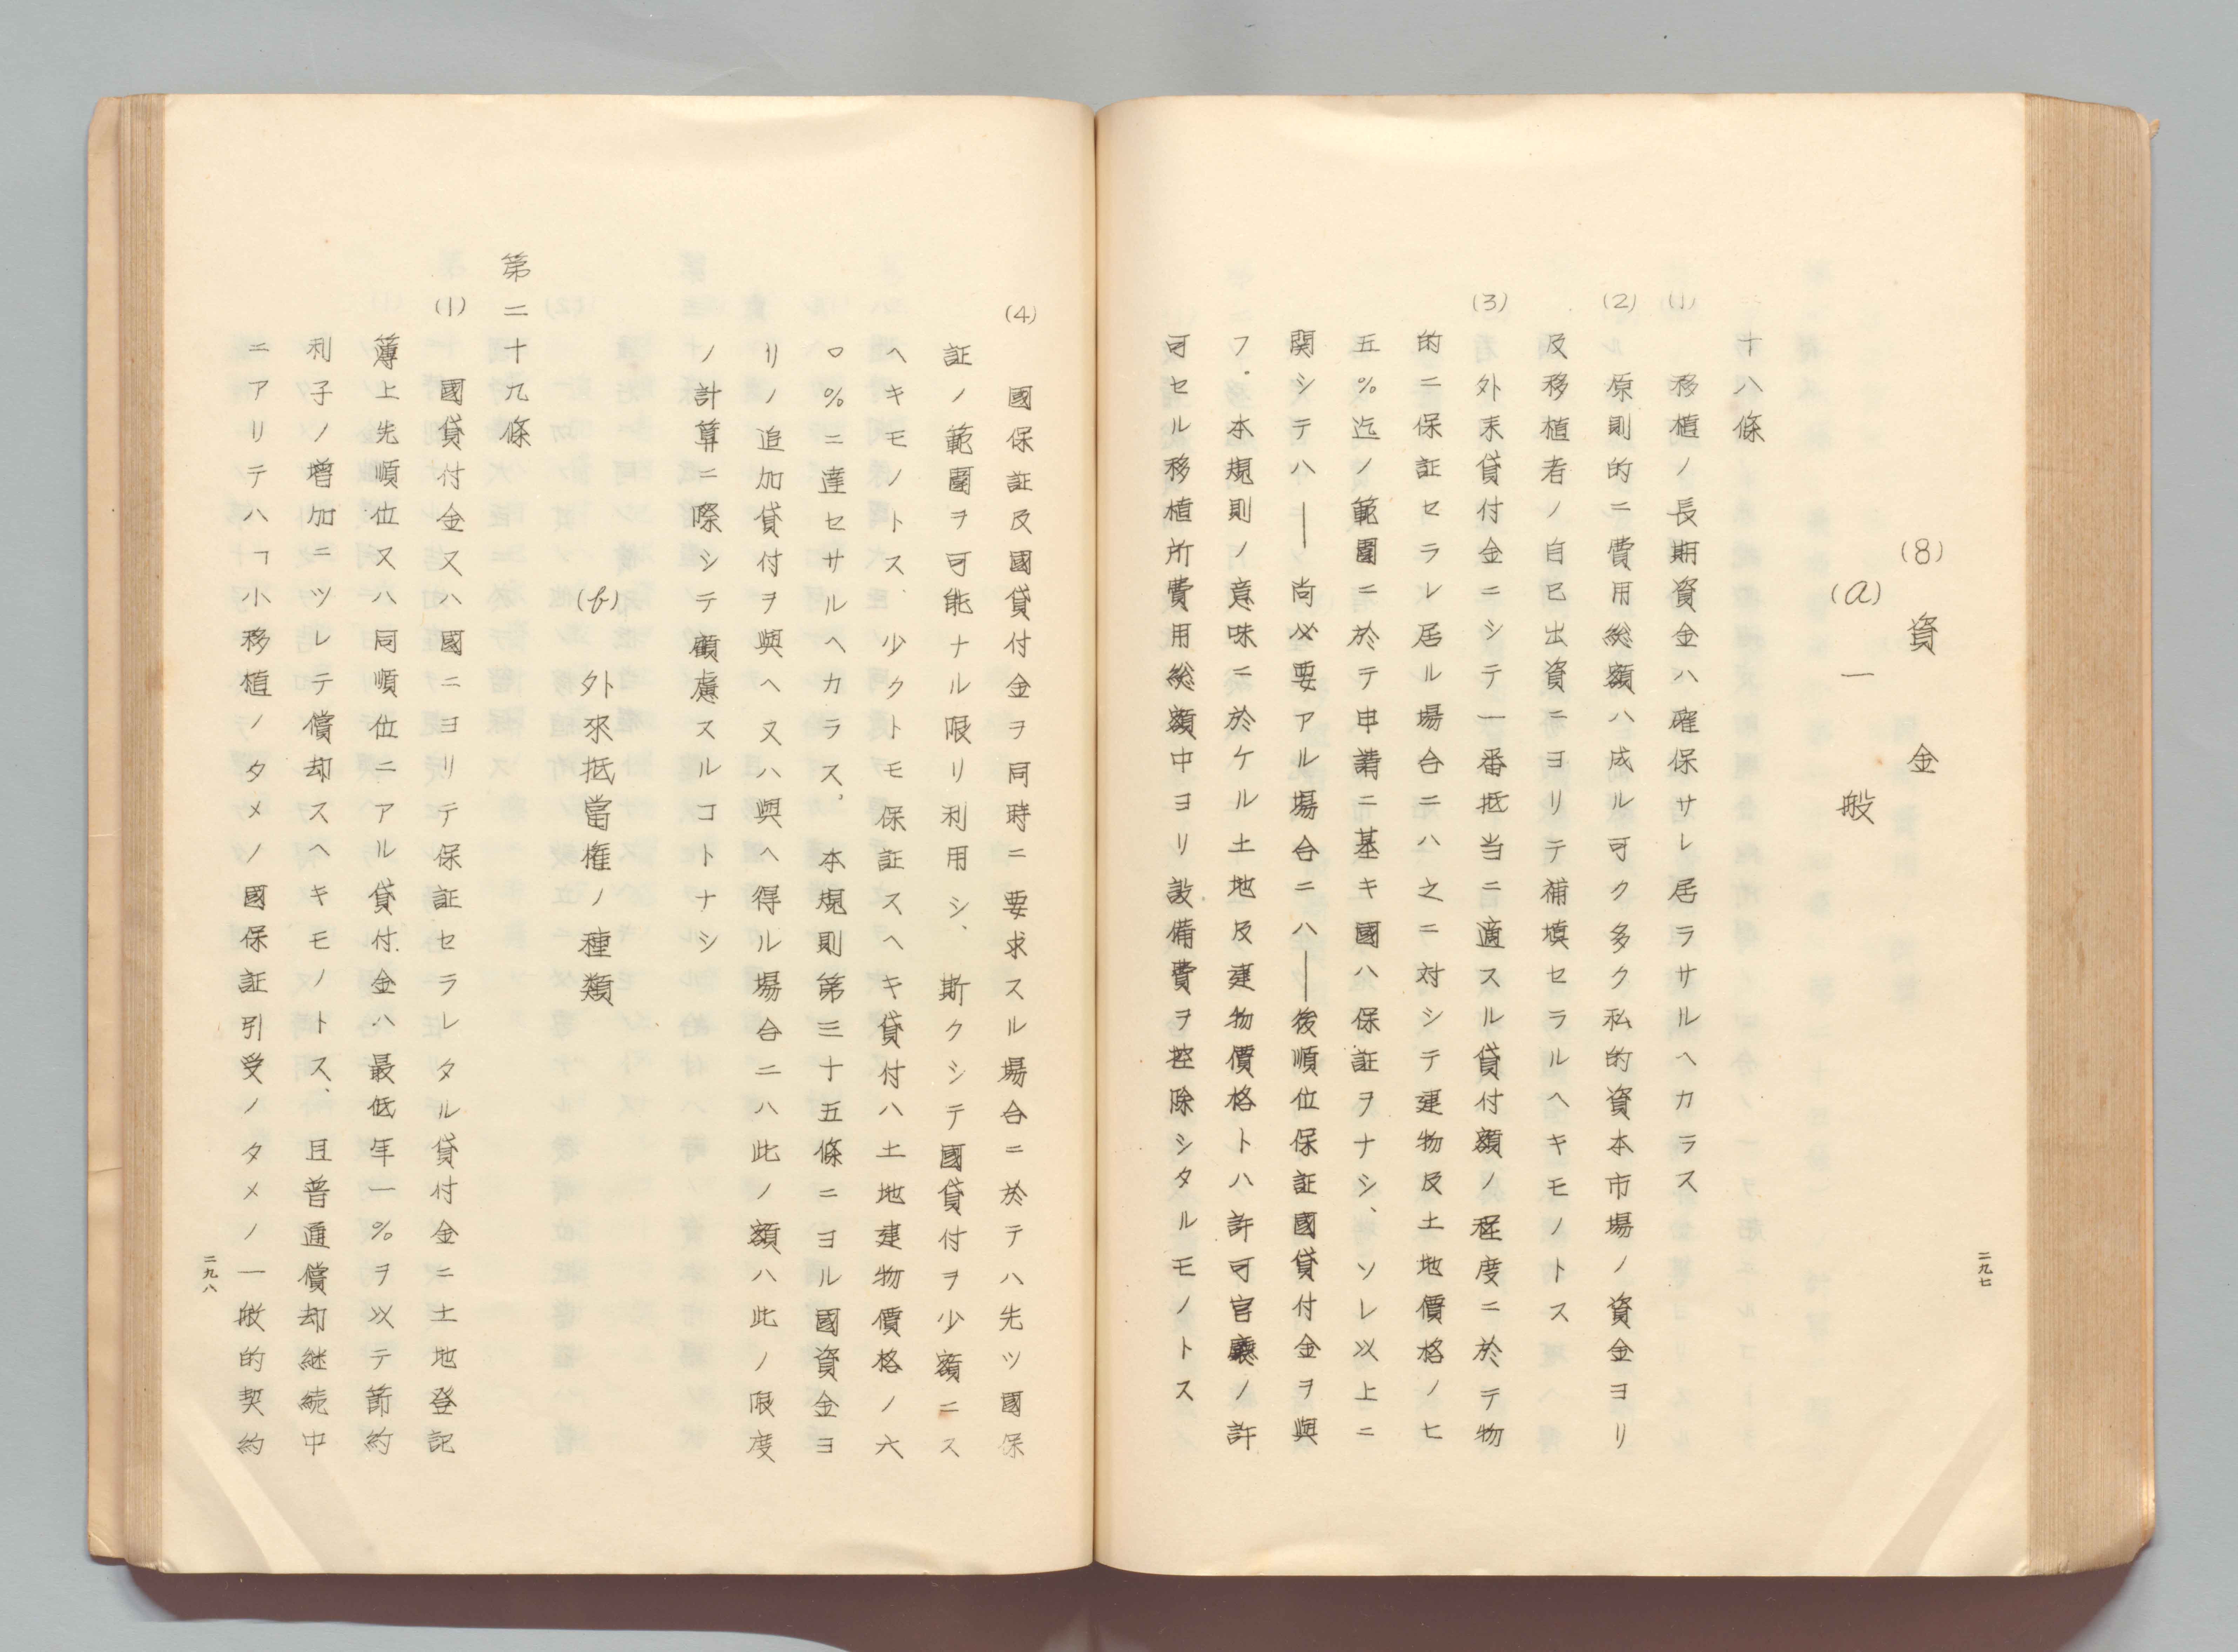 (8) 資金
(a) 一般
十八條
(1) 移植ノ長期資金ハ確保サレ居ラサルヘカラス
(2) 原則的ニ費用総額ハ成ル可ク多ク私的資本市場ノ資金ヨリ
及移植者ノ自己出資ニヨリテ補填セラルヘキモノトス
(3) 外来貸付金ニシテ一番抵当ニ適スル貸付額ノ程度ニ於テ物
的ニ保証セラレ居ル場合ニハ之ニ対シテ建物及土地價格ノ七
五%迄ノ範圍ニ於テ申請ニ基キ國ハ保証ヲナシ、ソレ以上ニ
関シテハ――尚必要アル場合ニハ――後順位保証國貸付金ヲ與
フ。本規則ノ意味ニ於ケル土地及建物價格トハ許可官廳ノ許
可セル移植所費用総額中ヨリ設備費ヲ控除シタルモノトス
二九七
(4) 國保証及國貸付金ヲ同時ニ要求スル場合ニ於テハ先ツ國保
証ノ範圍ヲ可能ナル限リ利用シ、斯クシテ國貸付ヲ少額ニス
ヘキモノトス、少クトモ保証スヘキ貸付ハ土地建物價格ノ六
〇%ニ達セサルヘカラス。本規則第三十五條ニヨル國資金ヨ
リノ追加貸付ヲ與ヘ又ハ與ヘ得ル場合ニハ此ノ額ハ此ノ限度
ノ計算ニ際シテ顧慮スルコトナシ
(b) 外來抵當権ノ種類
第二十九條
(1) 國貸付金又ハ國ニヨリテ保証セラレタル貸付金ニ土地登記
簿上先順位又ハ同順位ニアル貸付金ハ最低年一%ヲ以テ節約
利子ノ増加ニツレテ償却スヘキモノトス、且普通償却継続中
ニアリテハ「小移植ノタメノ國保証引受ノタメノ一般的契約
二九八